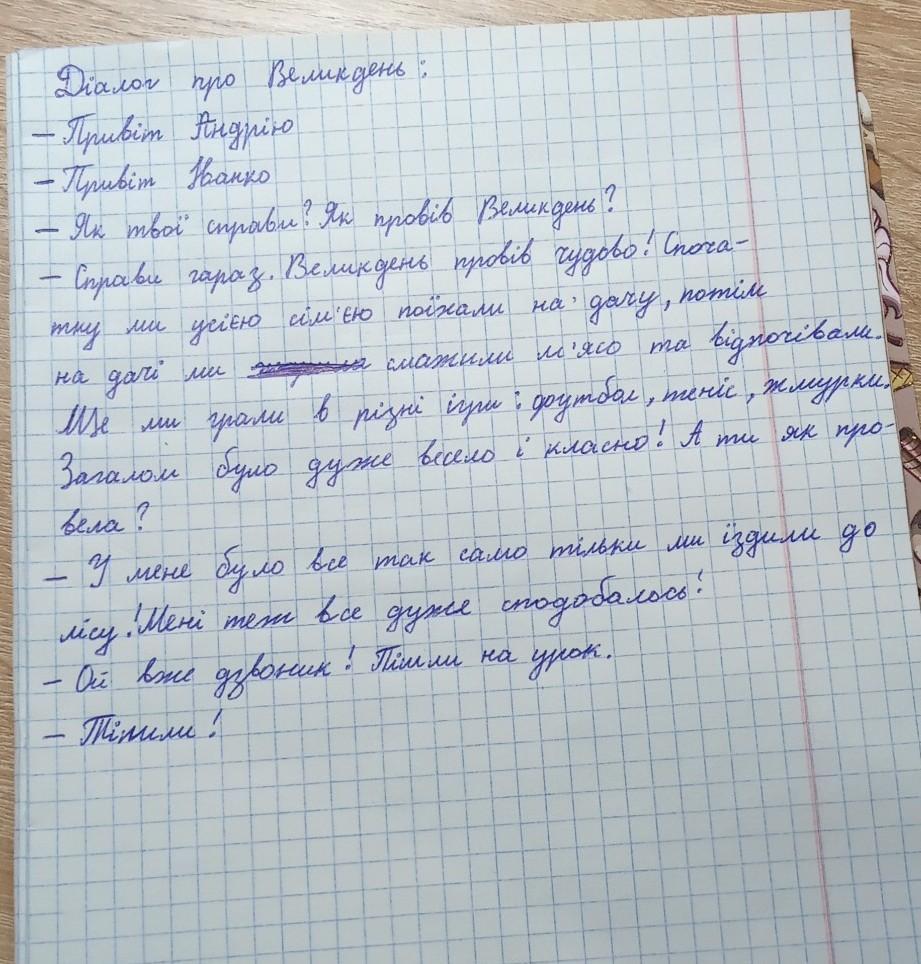 Діалог про Великдень:
— Привіт Андрію
— Привіт Іванко
— Як твої справи? Як провів Великдень?
— Справи гаразд. Великдень провів чудово! Споча-
тку ми усією сім'єю поїхали на дачу, потім
на дачі ми смажили м'ясо та відпочівали.
Ще ми грали в різні ігри: футбол, теніс, жмурки.
Загалом було дуже весело і класно! А ти як про-
вела?
— У мене було все так само тільки ми їздили до
лісу! Мені теж все дуже сподобалось!
— Ой вже дзвоник! Пішли на урок.
— Пішли!